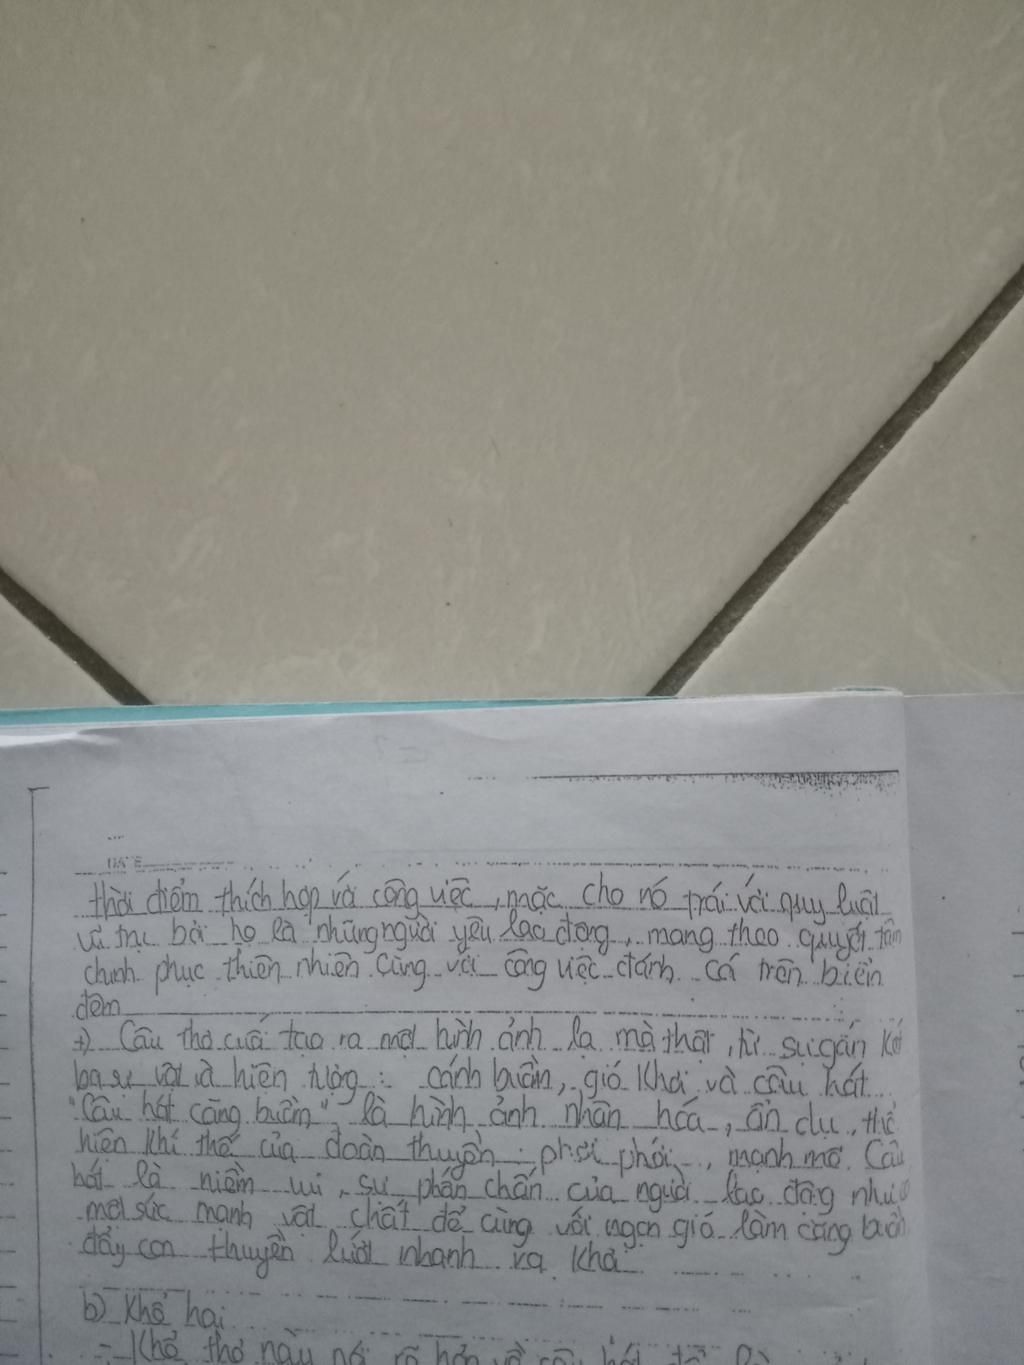 DATE
thời điểm thích hợp với công việc, mặc cho nó trái với quy luật
vũ trụ bởi họ là những người yêu lao động, mang theo quyết tâm
chinh phục thiên nhiên cùng với công việc đánh cá trên biển
đêm
+) Câu thơ cuối tạo ra một hình ảnh lạ mà thật, từ sự gắn kết
ba sự vật và hiện tượng: cánh buồm, gió khơi và câu hát.
"Câu hát căng buồm" là hình ảnh nhân hóa, ẩn dụ, thể
hiện khí thế của đoàn thuyền: phơi phới, mạnh mẽ. Câu
hát là niềm vui, sự phấn chấn của người lao động như có
một sức mạnh vật chất để cùng với ngọn gió làm căng buồm
đẩy con thuyền lướt nhanh ra khơi
b) Khổ hai
- Khổ thơ này nói rõ hơn về câu hát